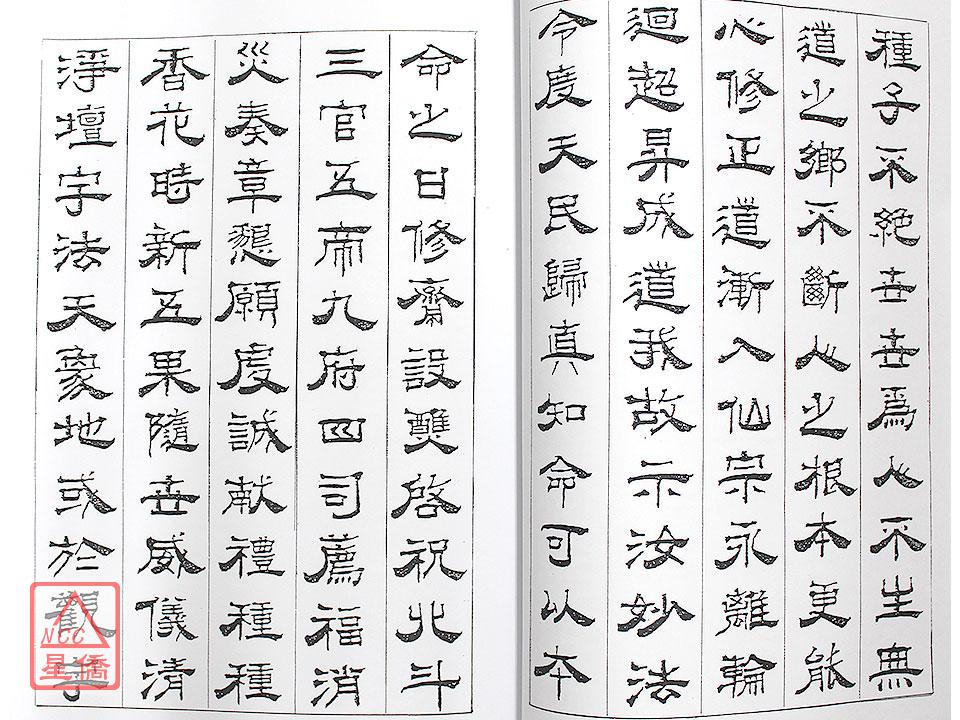 種子不絶世世爲人不生無
道之鄉不斷人之根本更能
心修正道漸入仙宗永離輪
迴超昇成道我故示汝妙法
令度天民歸真知命可以本
命之日修齋設醮啓祝北斗
三官五帝九府四司薦福消
災奏章懇願虔誠献禮種種
香花時新五果隨世威儀清
淨壇宇法天象地或於觀宇
NCC
星僑